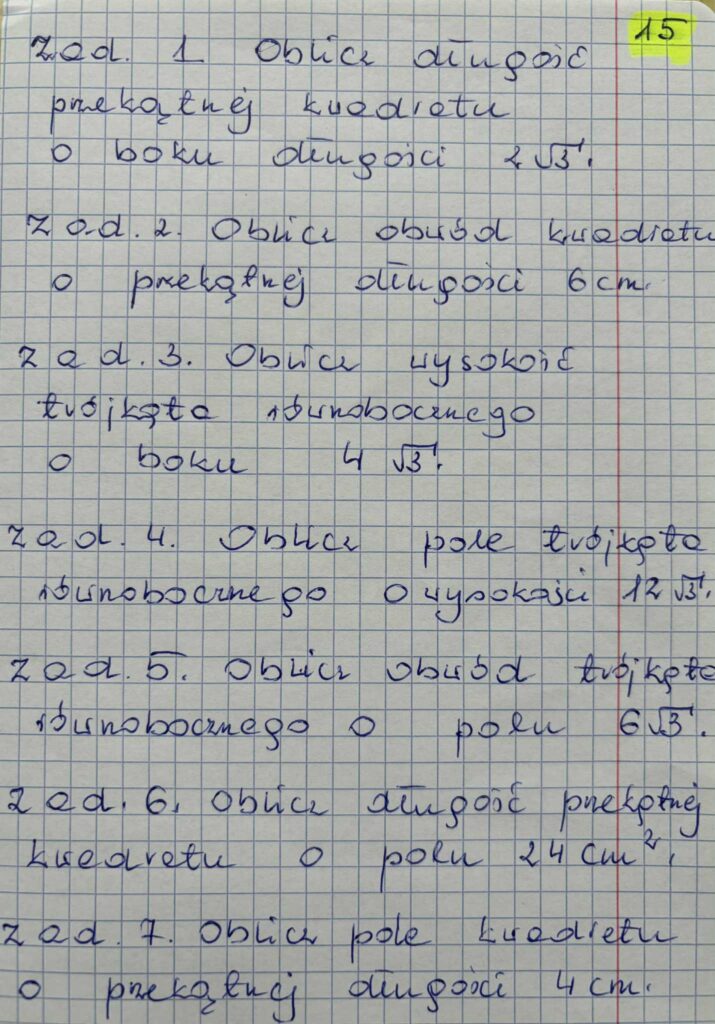 15
Zad. 1 Oblicz długość
przekątnej kwadratu
o boku długości 2√3.
Zad. 2. Oblicz obwód kwadratu
o przekątnej długości 6 cm.
Zad. 3. Oblicz wysokość
trójkąta równobocznego
o boku 4√3.
Zad. 4. Oblicz pole trójkąta
równobocznego o wysokości 12√3.
Zad. 5. Oblicz obwód trójkąta
równobocznego o polu 6√3.
Zad. 6. Oblicz długość przekątnej
kwadratu o polu 24 cm².
Zad. 7. Oblicz pole kwadratu
o przekątnej długości 4 cm.